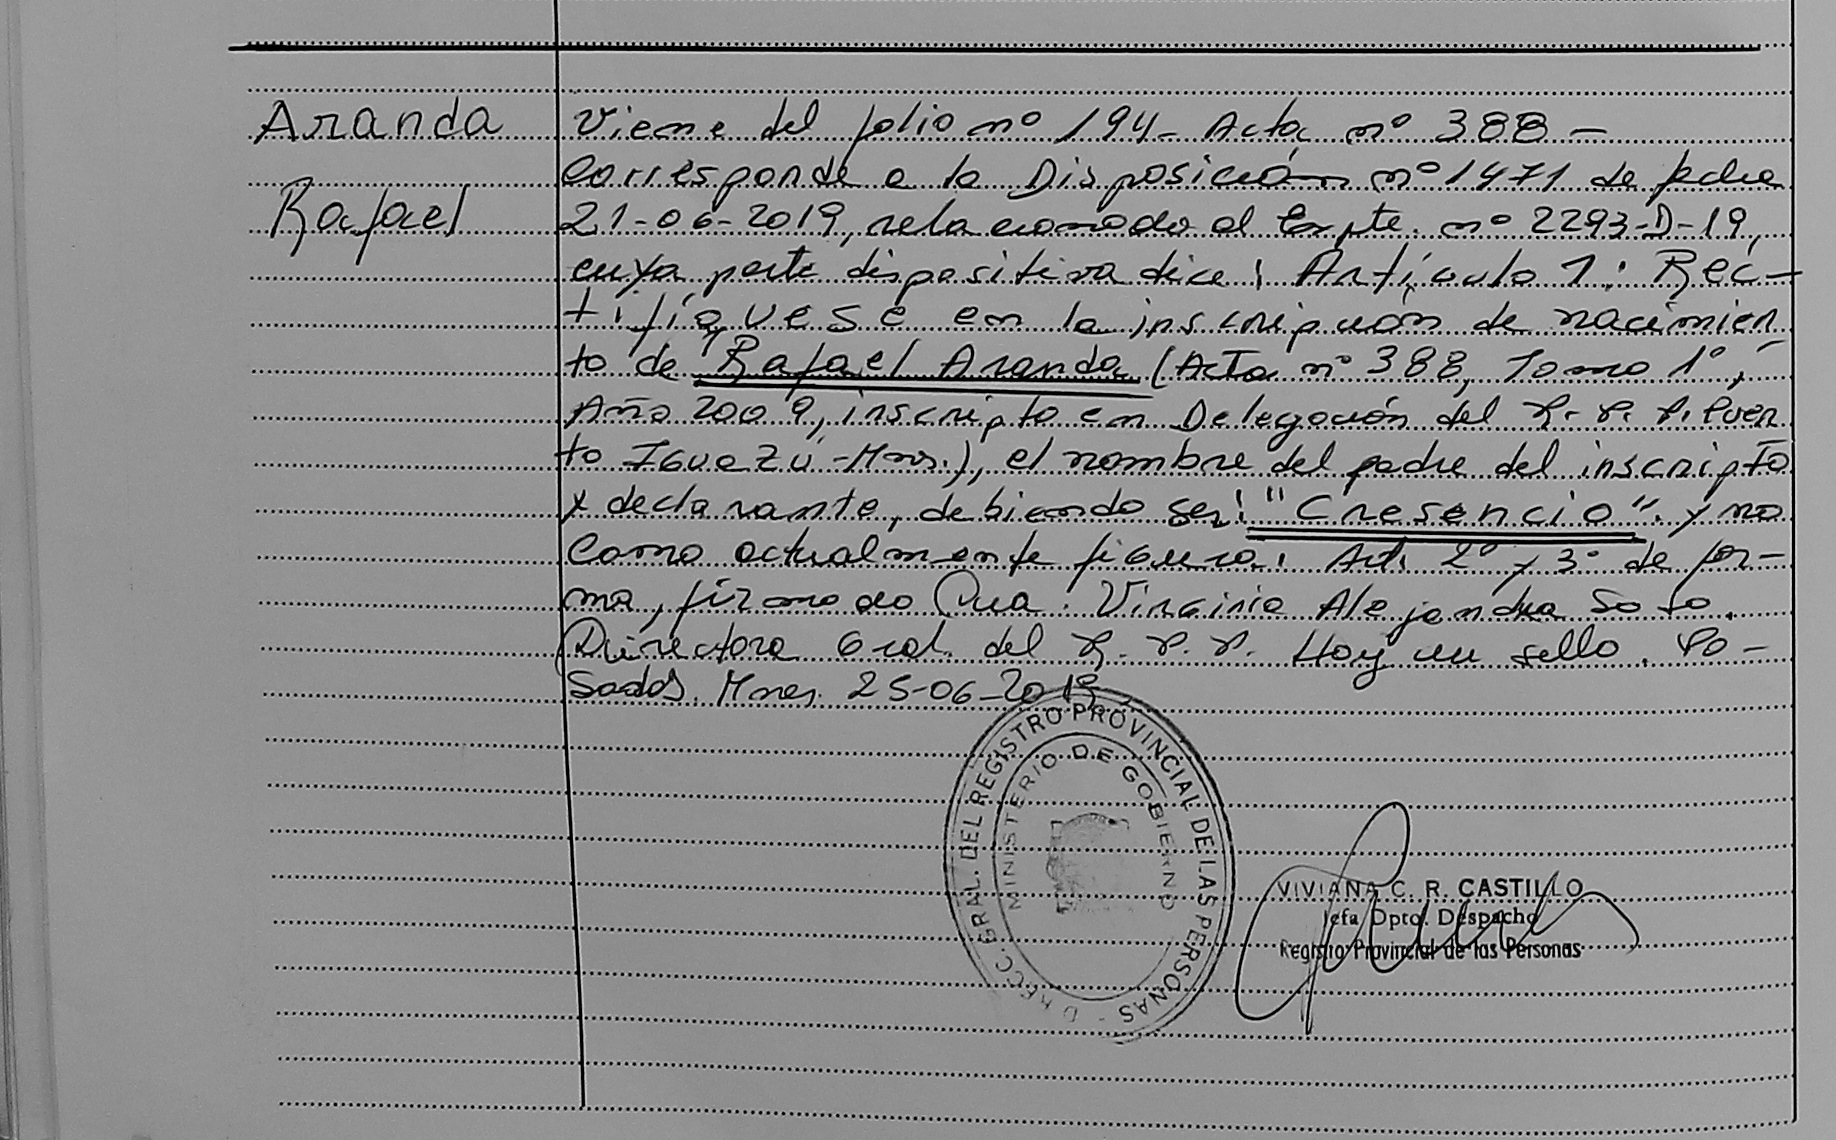 Aranda
Rafael
Viene del folio nº 194- Acta nº 388 -
Corresponde a la Disposición nº 1471 de fecha
21-06-2019, relacionado al Expte. nº 2293-D-19,
cuya parte dispositiva dice: Artículo 1: Rec-
tifíquese en la inscripción de nacimien
to de Rafael Aranda (Acta nº 388, Tomo 1º,
Año 2009, inscripto en Delegación del R. P. P. Puer
to Iguazú-Mnes.), el nombre del padre del inscripto
y declarante, debiendo ser: "Cresencio". y no
como actualmente figura. Art. 2º y 3º de for-
ma, firmado Virginia Alejandra Soto.
Directora Gral. del R. P. P. Hay un sello. Po-
sadas. Mnes. 25-06-2019
DIRECC. GRAL. DEL REGISTRO PROVINCIAL DE LAS PERSONAS -
MINISTERIO DE GOBIERNO
VIVIANA C. R. CASTILLO
Jefa Dpto. Despacho
Registro Provincial de las Personas